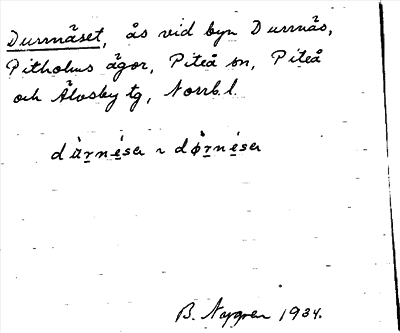 Durrnäset, ås vid byn Durrnäs,
Pitholms ägor, Piteå sn, Piteå
och Älvsby tg, Norrb. l.
dúrnésa ~ dørnésa
B. Nygren 1934.